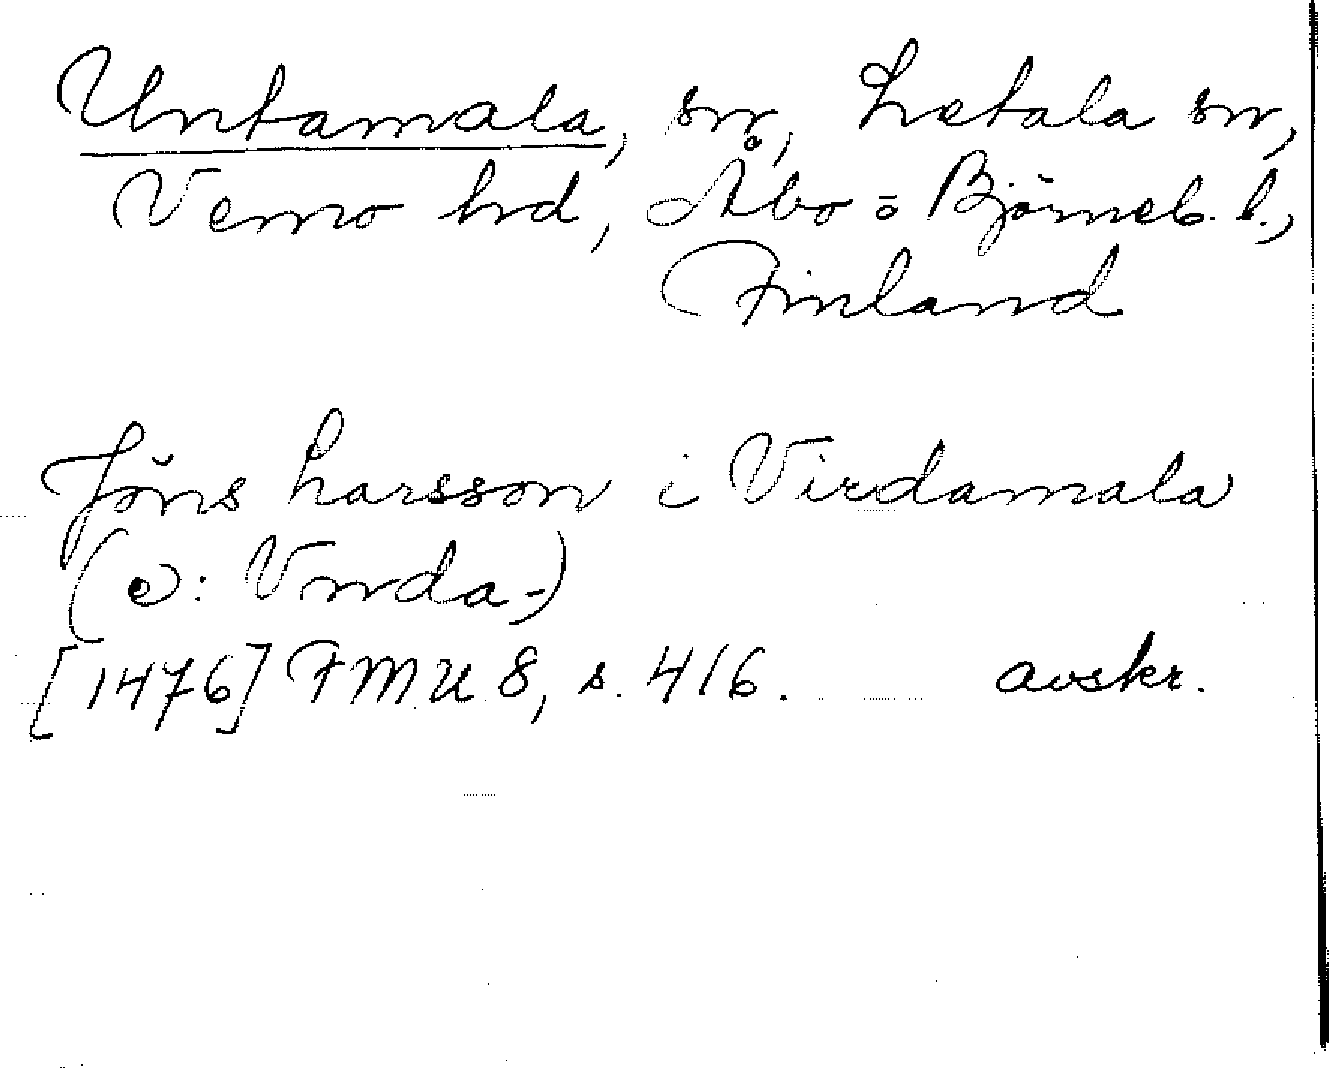 Untamala, sn, Letala sn,
Vemo hd, Åbo o Björneb. l.,
Finland
Jöns Larsson i Virdamala
(ɔ: Vnda-)
[1476] FMU 8, s. 416. avskr.